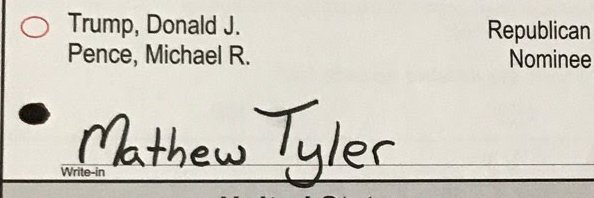 Trump, Donald J. Republican
Pence, Michael R. Nominee
Mathew Tyler
Write-in